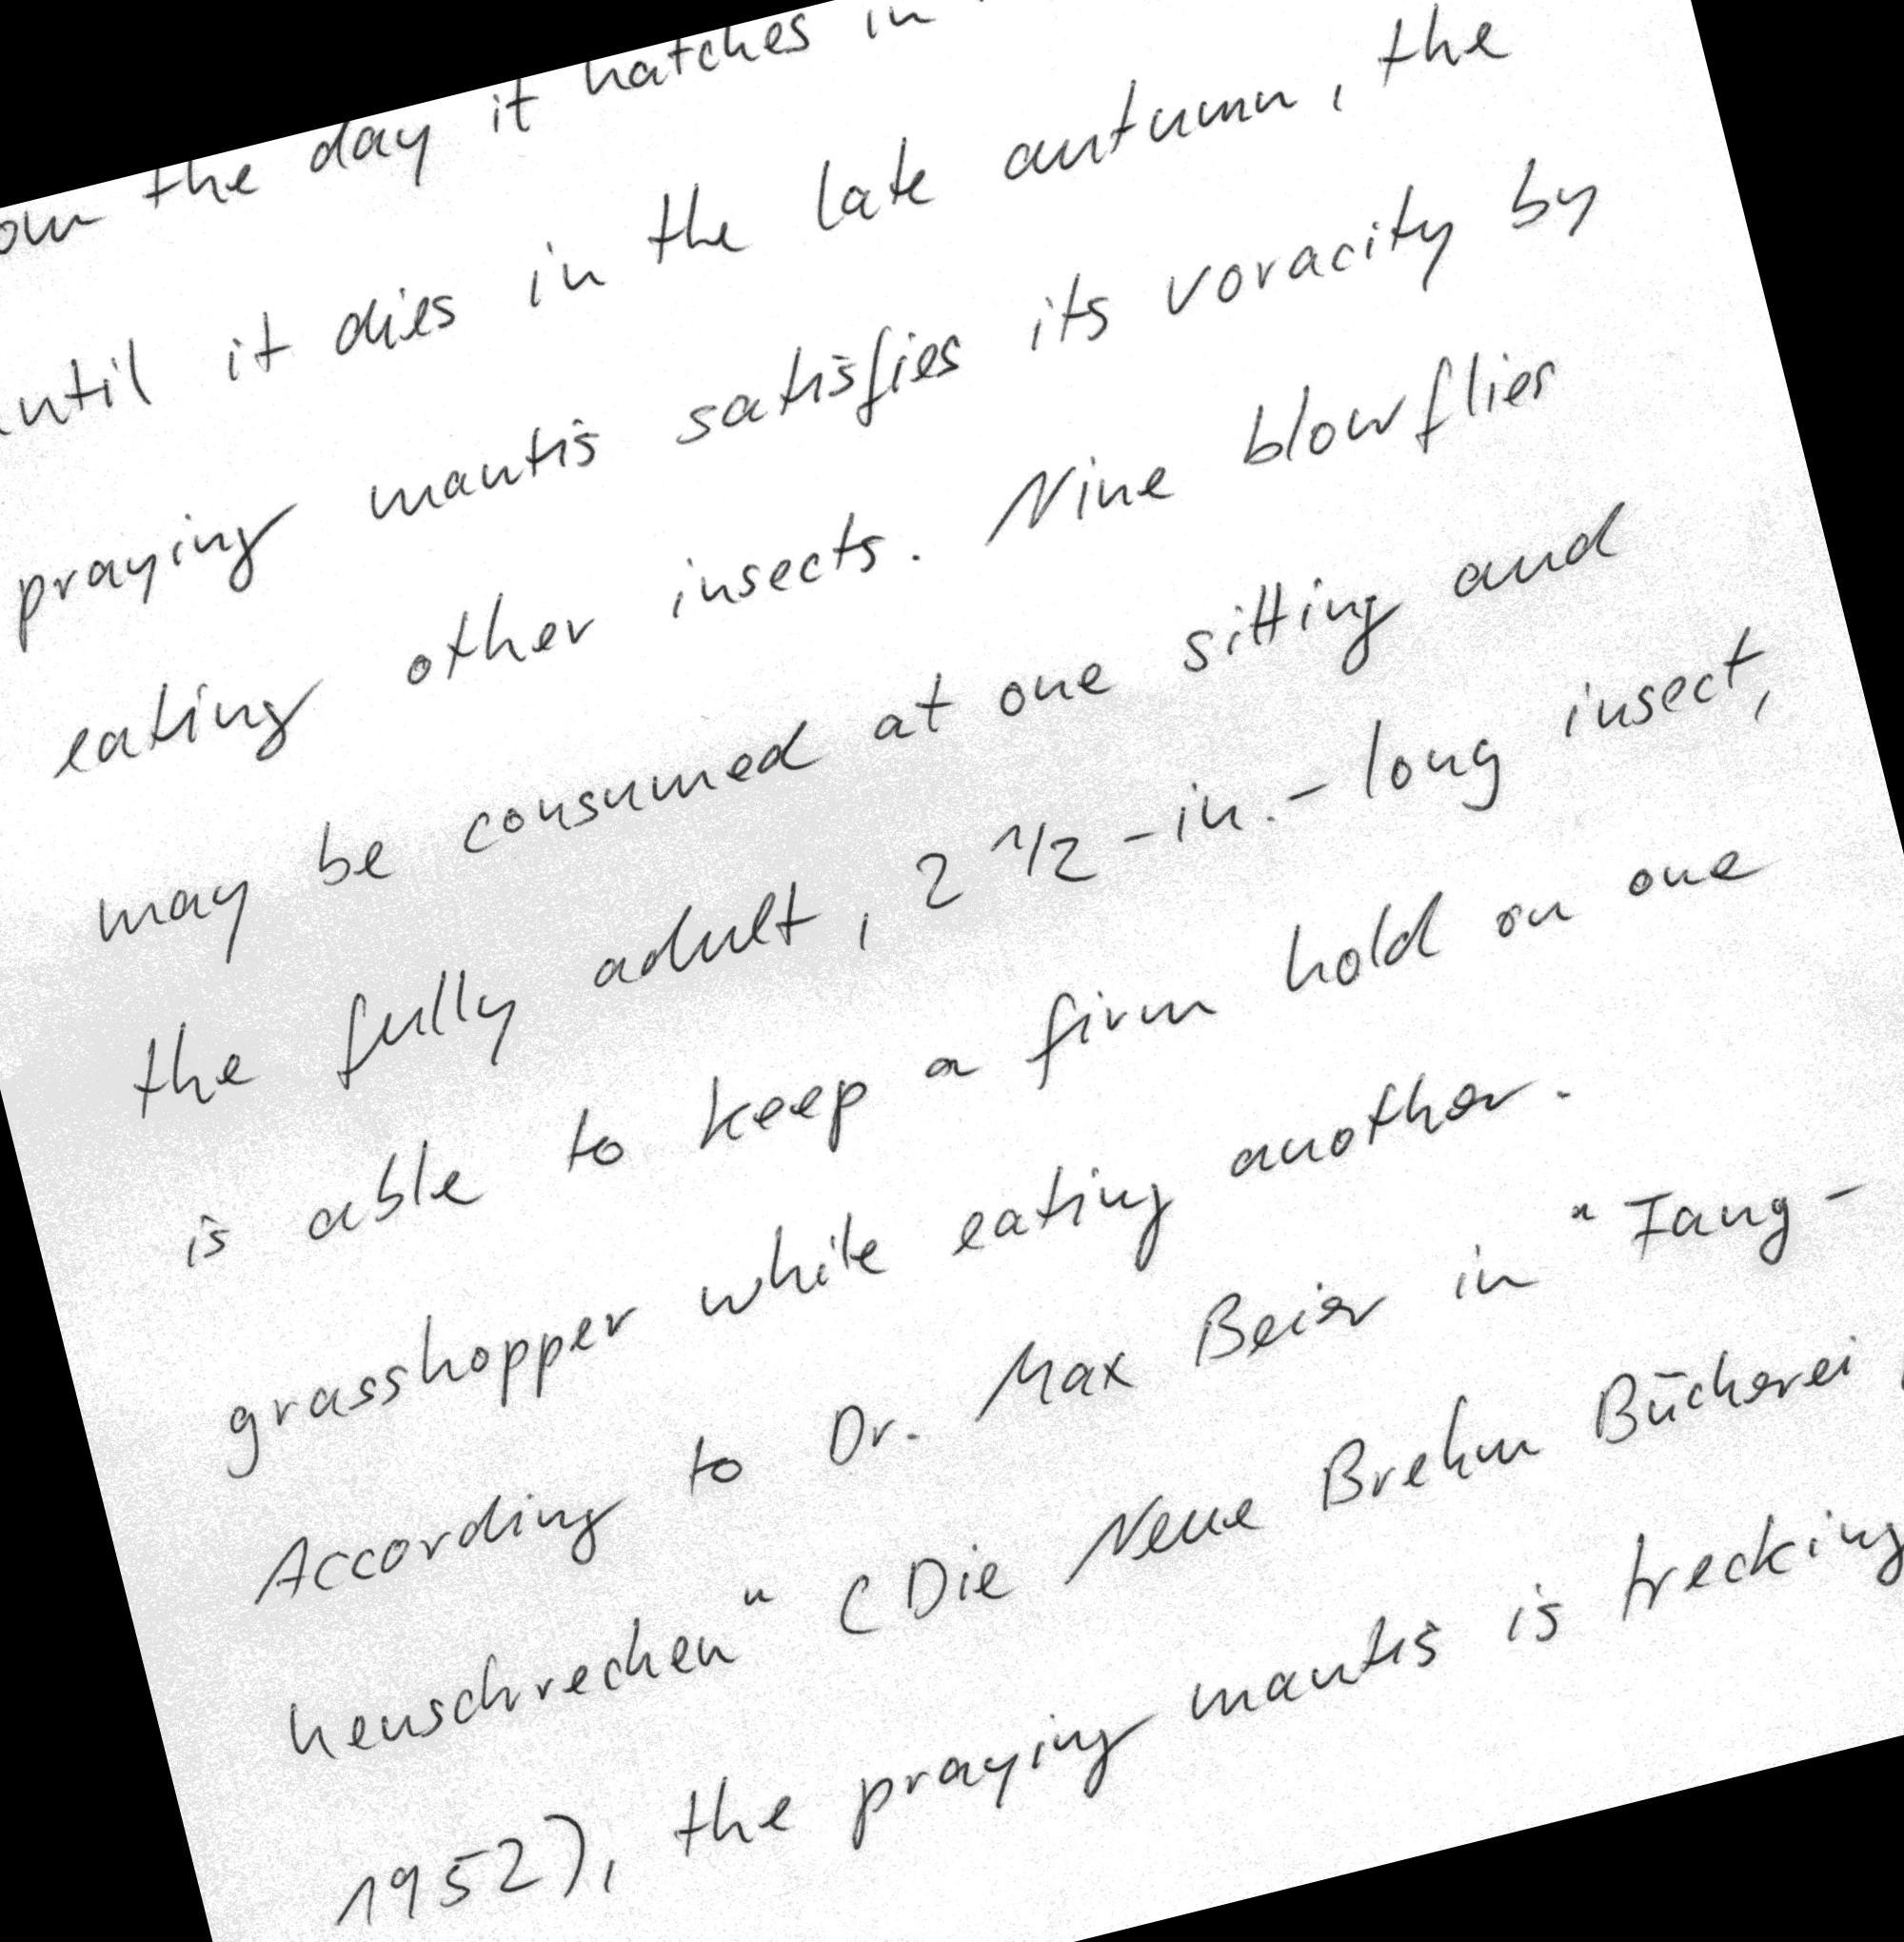 the day it hatches in
until it dies in the late autumn, the
praying mantis satisfies its voracity by
eating other insects. Nine blowflies
may be consumed at one sitting and
the fully adult, 2 1/2 -in.- long insect,
is able to keep a firm hold on one
grasshopper while eating another.
According to Dr. Max Beier in "Fang-
heuschrecken" (Die Neue Brehm Bücherei,
1952), the praying mantis is trecking